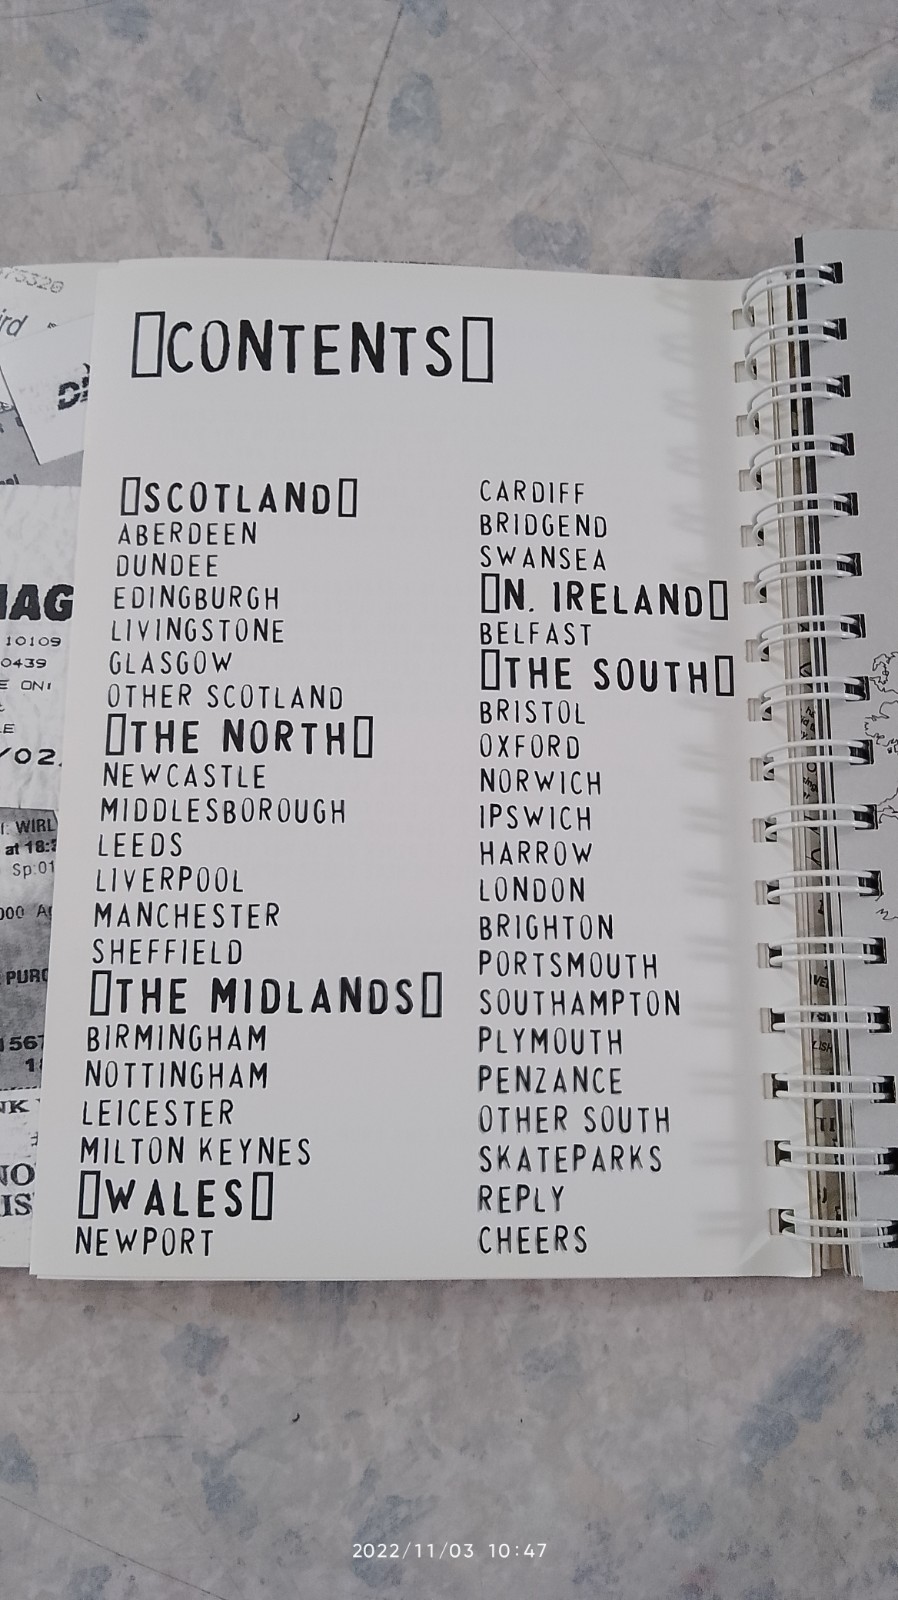 75320
ird
IAG
10109
0439
E
/02.
WIRL
at 18:
Sp:01
000
PUR
1567
NO
IS
▯CONTENTS▯
▯SCOTLAND▯
ABERDEEN
DUNDEE
EDINGBURGH
LIVINGSTONE
GLASGOW
OTHER SCOTLAND
▯THE NORTH▯
NEWCASTLE
MIDDLESBOROUGH
LEEDS
LIVERPOOL
MANCHESTER
SHEFFIELD
▯THE MIDLANDS▯
BIRMINGHAM
NOTTINGHAM
LEICESTER
MILTON KEYNES
▯WALES▯
NEWPORT
CARDIFF
BRIDGEND
SWANSEA
▯N. IRELAND▯
BELFAST
▯THE SOUTH▯
BRISTOL
OXFORD
NORWICH
IPSWICH
HARROW
LONDON
BRIGHTON
PORTSMOUTH
SOUTHAMPTON
PLYMOUTH
PENZANCE
OTHER SOUTH
SKATEPARKS
REPLY
CHEERS
2022/11/03 10:47